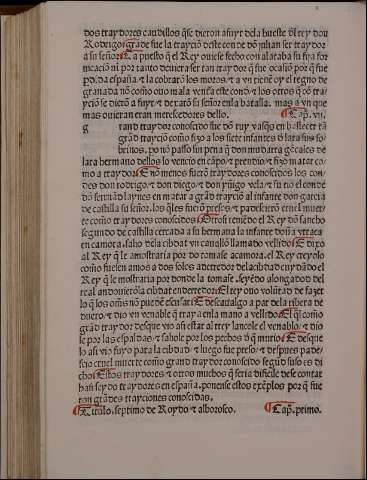 dos traydores caudillos q̃se dieron a fuyr dela hueste del rey don
Rodrigo. grãde fue la traycion deste conde don julian ser traydor
a su señor. E a puesto q̃ el Rey ouiesse fecho con alataba su fija for
nicaciõ ni por tanto deuiera ser tan traydor que fue ocasion por q̃ fue
p̃dida españa ⁊ la cobraron los moros ⁊ a vn tienẽ oy el regno de
granada nõ como ouo mala venta este conde ⁊ los otros q̃ cõ tray
ciõ se dierõ a fuyr ⁊ dexarõ su señor enla batalla. mas a vn que
mas ouieran eran merescedores dello. Cap. vij.
g rand traydor conoscido fue dõ ruy vasq̃s en bastecer tã
grãd trayciõ como fizo alos siete infantes d̃ lara sus so
brinos. po nõ passo sin pena q̃ don mudarra gõçales de
lara hermano dellos lo vencio en cãpo ⁊ prendio ⁊ fizo matar co
mo a traydor. E nõ menos fuerõ traydores conoscidos los con
des don rodrigo ⁊ don diego ⁊ don yñigo vela ⁊ su tio el conde
dõ fernãd laynes en matar a grãd trayciõ al infante don garcia
de castilla su señor. los q̃les fuerõ presos ⁊ padescierõ cruel muer
te como traydores conoscidos. Otrosi teniẽdo el Rey dõ sancho
segundo de castilla cercada a su hermana la infante doña vrraca
en çamora. salio dela cibdat vn cauallo llamado vellido. E dixo
al Rey q̃ le amostraria por do tomase a çamora. el Rey creyolo
como fuelen amos a dos solos aderredor dela cibdad cuydãdo el
Rey q̃ le mostraria por donde la tomase. seyẽdo alongados del
real andouierõ la cibdat en derredor. El rey ouo volũtad de fazer
lo q̃ los oms̃ nõ puedẽ escusar. E descaualgo a par dela ribera de
duero ⁊ dio vn venable q̃ traya enla mano a vellido. El q̃l como
grãd traydor desque vio assi estar al rey lancole el venablo ⁊ dio
le por las espaldas ⁊ saliole por los pechos d̃ q̃ murio. E desque
lo assi vio fuyo para la cibdad ⁊ luego fue preso ⁊ despues pade
scio cruel muerte como grand traydor conoscido segũd suso es di
cho. Estos traydores ⁊ otros muchos q̃ seria dificile de se contar
han seydo traydores en españa. ponense estos exẽplos por q̃ fue
ron grãdes trayciones conoscidas.
Titulo. septimo de Roydo ⁊ alboroso. Cap. primo.